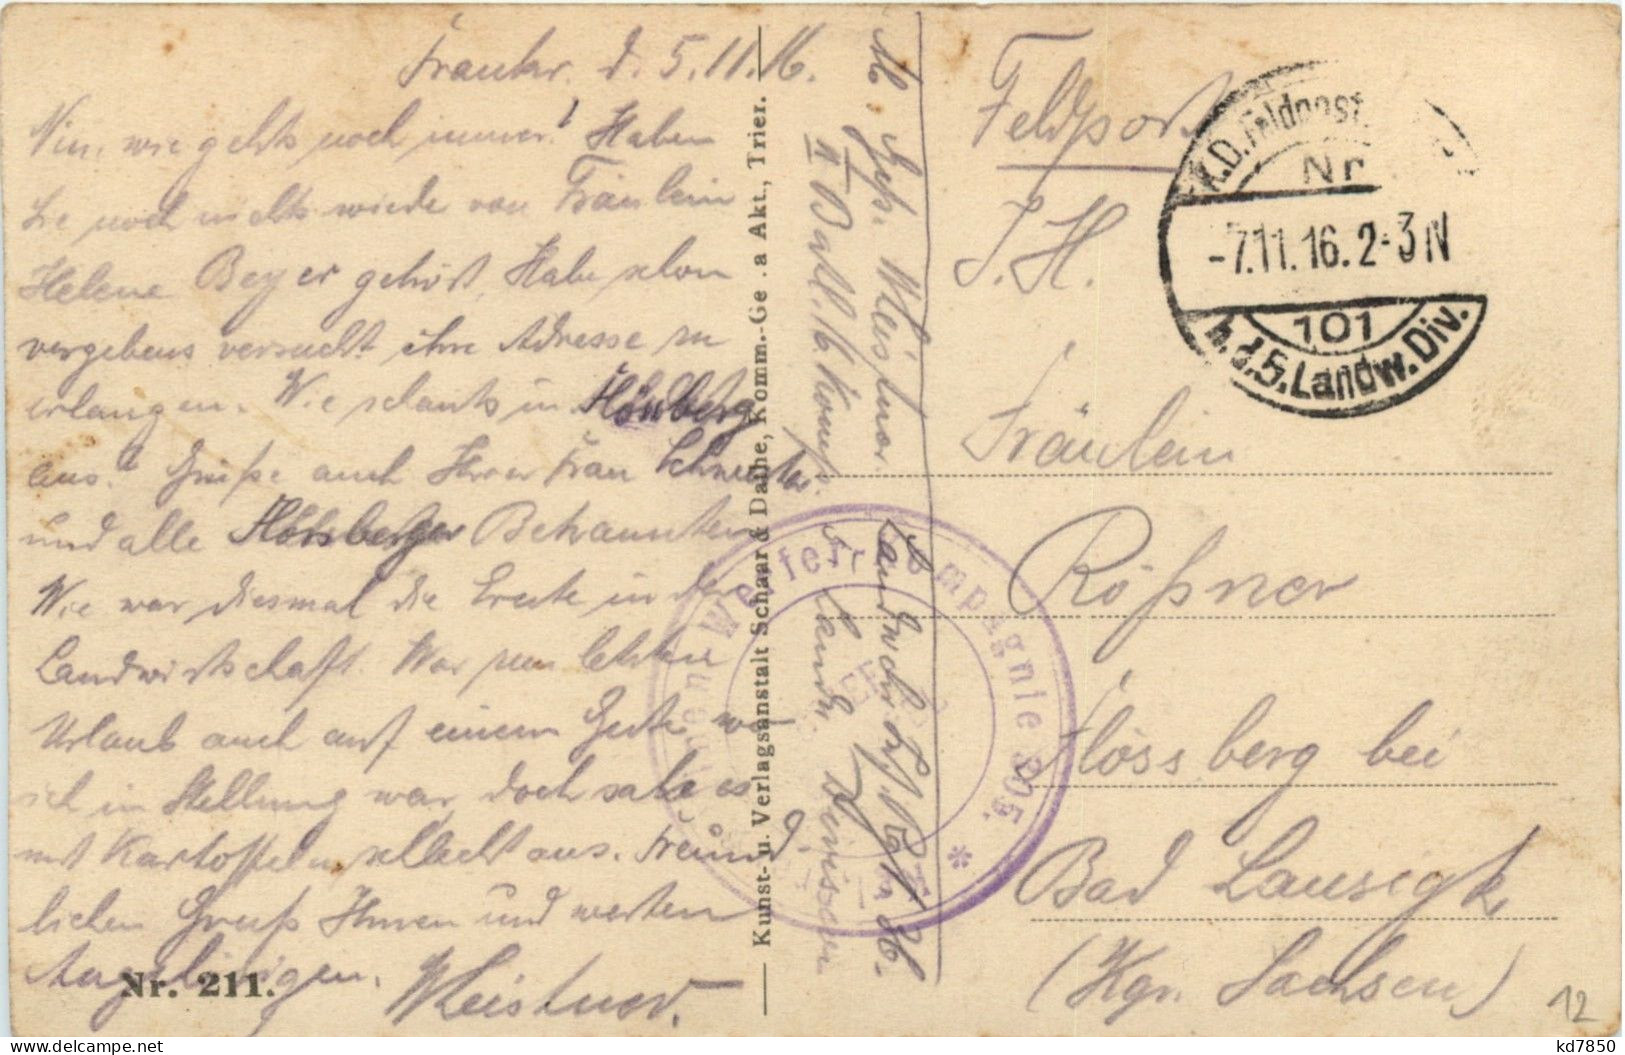 Frankr. d. 5.11.16.
Nun, wie gehts noch immer? Haben
Sie noch nichts wieder von Fräulein
Helene Beyer gehört, Habe schon
vergebens versucht ihre Adresse zu
erlangen. Wie schauts in Flössberg
aus? Grüße auch Ihrer Frau Schwester
und alle Flössberger Bekannten
Wie war diesmal die Ernte in der
Landwirtschaft. War zum letzten
Urlaub auch auf einem Gute wo
ich in Stellung war, doch sahe es
mit Kartoffeln schlecht aus. Freund-
lichen Gruß Ihnen und werten
Angehörigen.
Nr. 211.
Kunst- u. Verlagsanstalt Schaar & Dathe, Komm.-Ges. a Akt., Trier.
II Batl. 16. Komp.
5 Landw. Division
Landwehr Inf. Rgt. 36.
Werfer Kompagnie 305. *
Feldpost
S. H.
K.D. Feldpost
Nr
-7.11.16. 2-3 N
101
h. d. 5. Landw. Div.
Fräulein
Rößner
Flössberg bei
Bad Lausigk
(Kgr. Sachsen)
12
kd7850